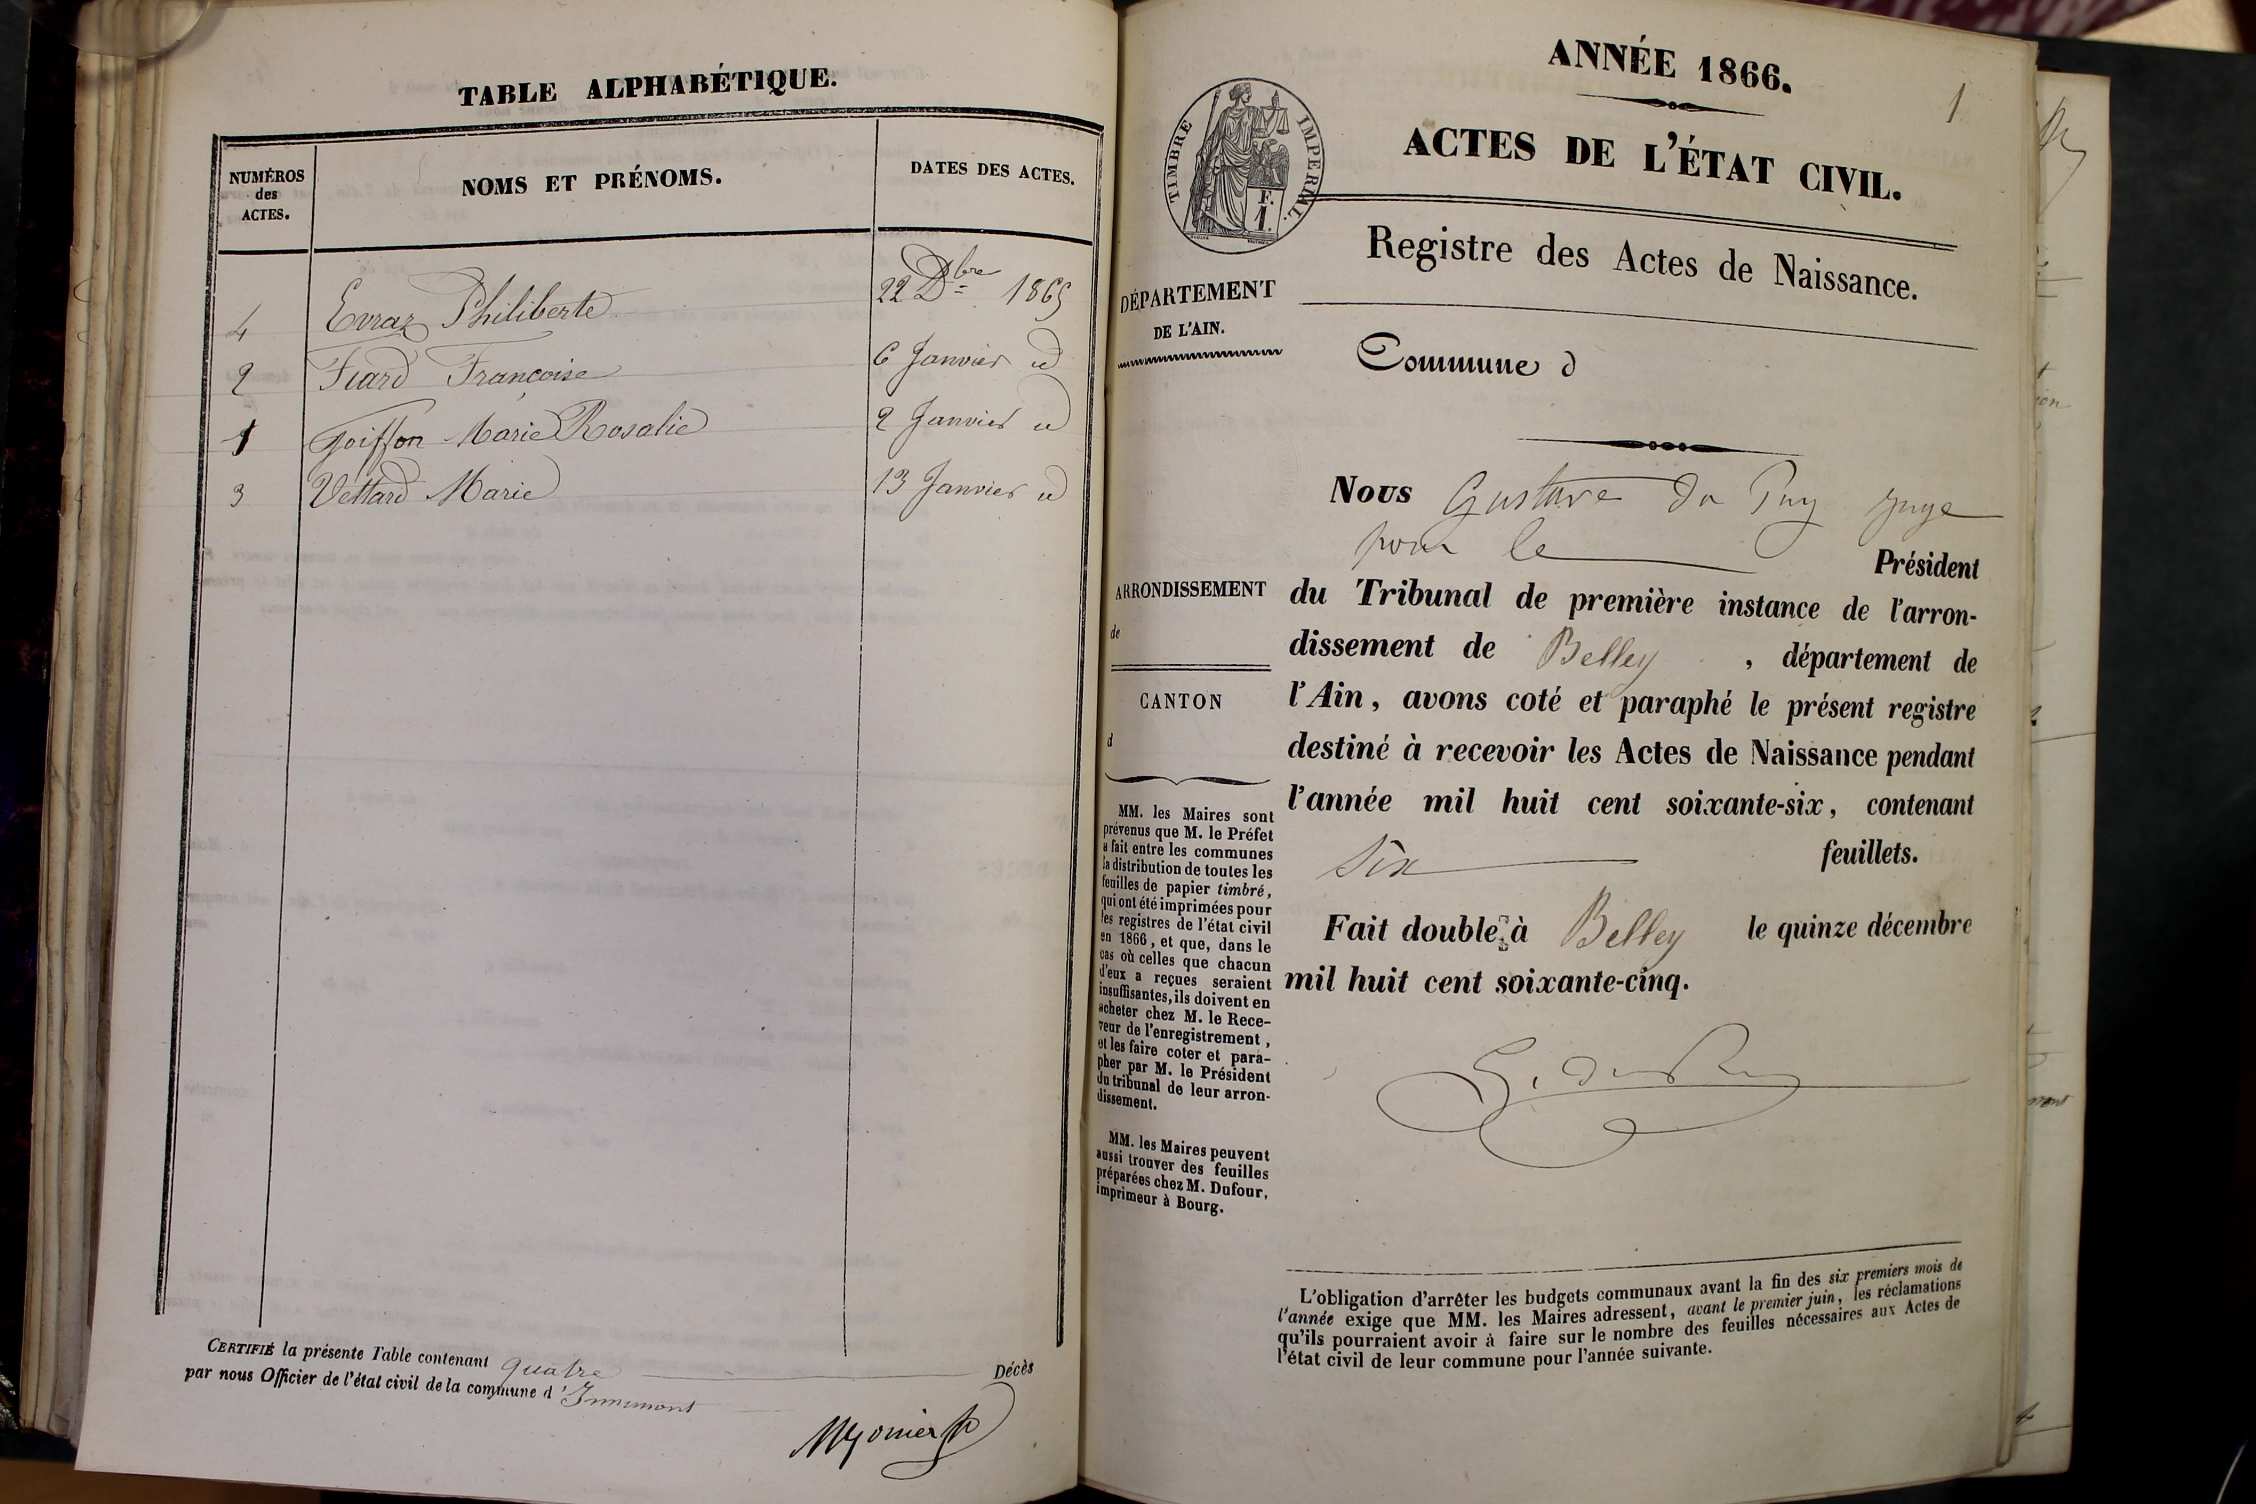 TABLE ALPHABÉTIQUE.
NUMÉROS
des
ACTES.
NOMS ET PRÉNOMS.
DATES DES ACTES.
4 Evraz Philiberte 22 Dbre 1865
2 Fiard Françoise 6 Janvier id
1 Goiffon Marie Rosalie 2 Janvier id
3 Vettard Marie 13 Janvier id
CERTIFIÉ la présente Table contenant quatre Décès
par nous Officier de l'état civil de la commune d'Innimont
ANNÉE 1866.
1
ACTES DE L'ÉTAT CIVIL.
TIMBRE IMPERIAL.
F.
1.
Registre des Actes de Naissance.
DÉPARTEMENT
DE L'AIN.
Commune d
ARRONDISSEMENT
de
CANTON
d
MM. les Maires sont
prévenus que M. le Préfet
a fait entre les communes
la distribution de toutes les
feuilles de papier timbré,
qui ont été imprimées pour
les registres de l'état civil
en 1866, et que, dans le
cas où celles que chacun
d'eux a reçues seraient
insuffisantes, ils doivent en
acheter chez M. le Rece-
veur de l'enregistrement,
et les faire coter et para-
pher par M. le Président
du tribunal de leur arron-
dissement.
MM. les Maires peuvent
aussi trouver des feuilles
préparées chez M. Dufour,
imprimeur à Bourg.
Nous Gustave Du Puy juge
pour le Président
du Tribunal de première instance de l'arron-
dissement de Belley, département de
l'Ain, avons coté et paraphé le présent registre
destiné à recevoir les Actes de Naissance pendant
l'année mil huit cent soixante-six, contenant
six feuillets.
Fait double à Belley le quinze décembre
mil huit cent soixante-cinq.
L'obligation d'arrêter les budgets communaux avant la fin des six premiers mois de
l'année exige que MM. les Maires adressent, avant le premier juin, les réclamations
qu'ils pourraient avoir à faire sur le nombre des feuilles nécessaires aux Actes de
l'état civil de leur commune pour l'année suivante.